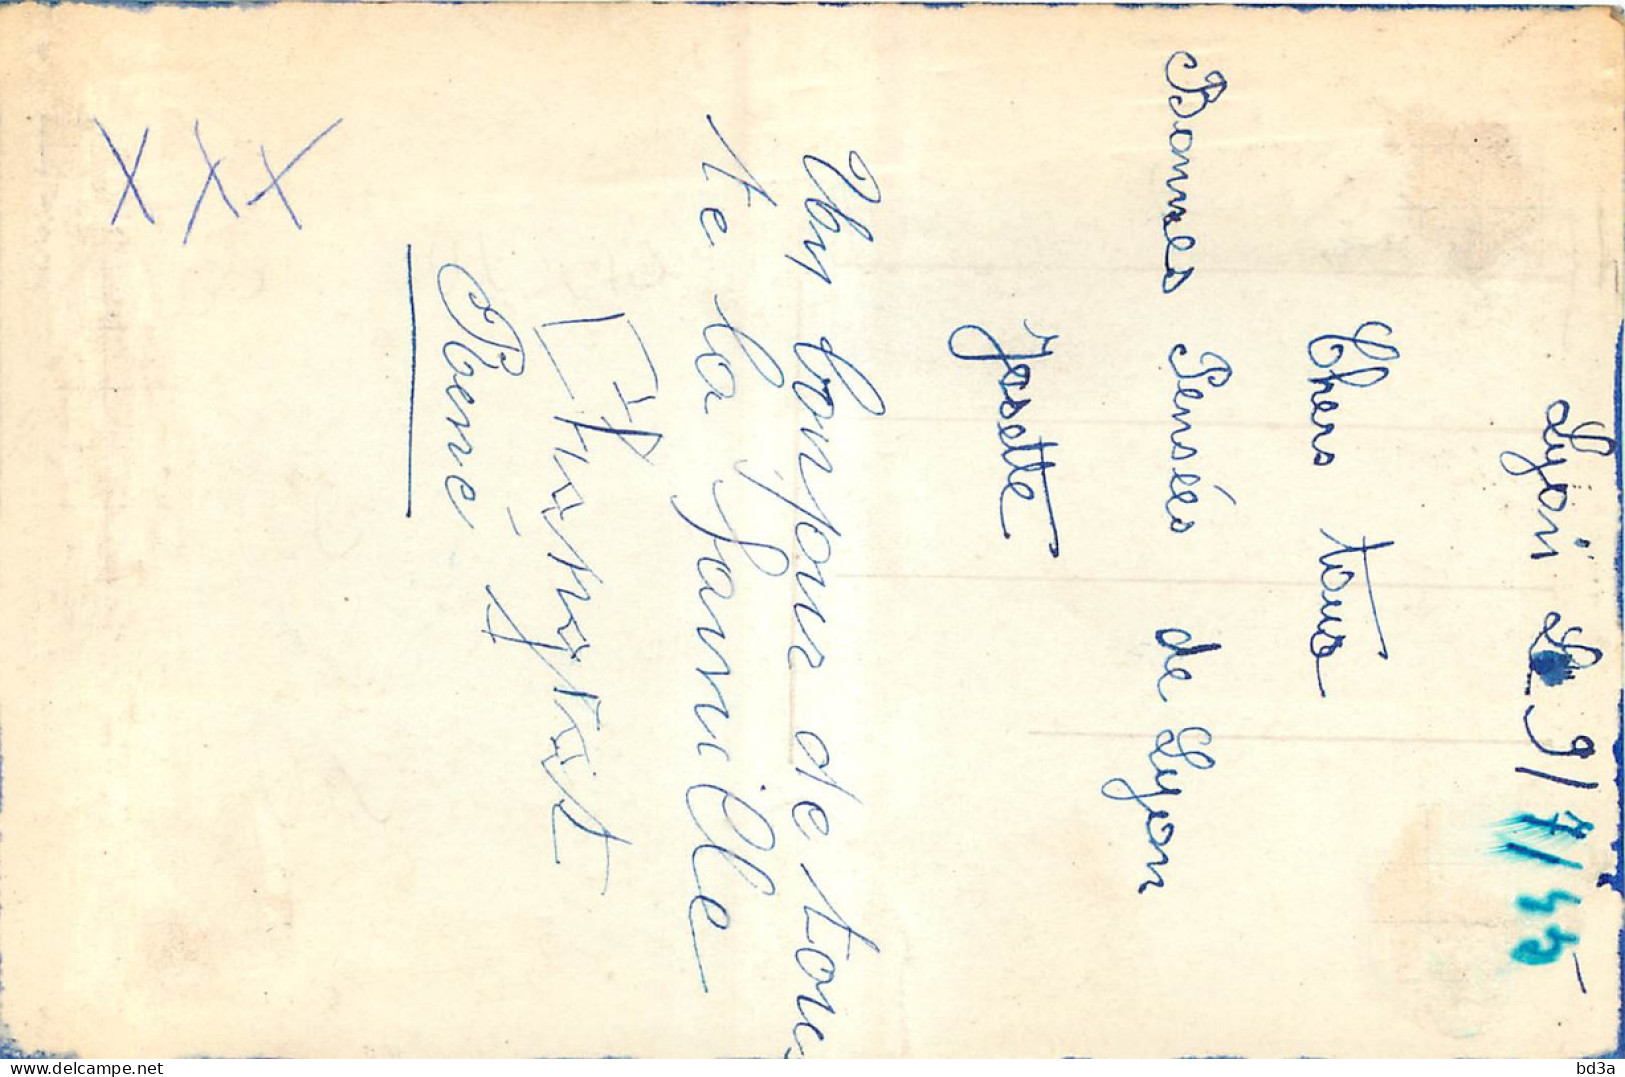 Lyon le 9/7/55
Chers tous
Bonnes Pensées de Lyon
Josette
Un bonjour de tou
te la famille
René
XXX
www.delcampe.net
bd3a